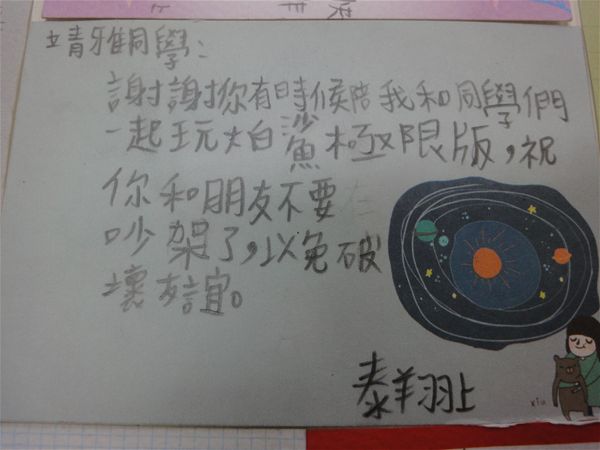 靖雅同學：
謝謝你有時候陪我和同學們
一起玩大白鯊極限版，祝
你和朋友不要
吵架了，以免破
壞友誼。
泰羽上
xiu